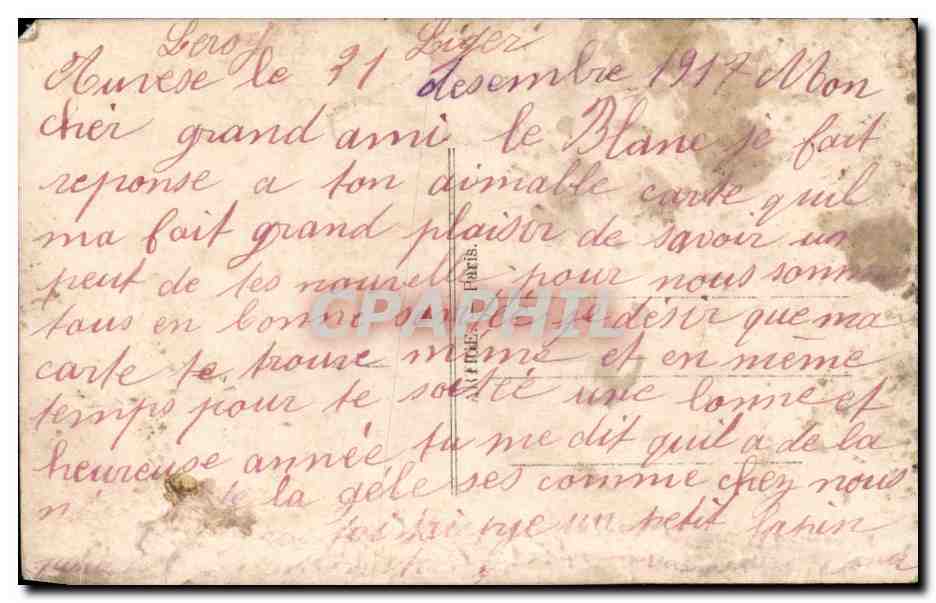 Leroy Liger
Auvese le 21 desembre 1917 Mon
cher grand ami le Blanc je fait
reponse a ton aimable carte quil
ma fait grand plaisir de savoir un
peut de tes nouvelle pour nous somme
tous en bonne santée je désir que ma
carte te trouve mime et en même
temps pour te soetée une bonne et
heureuse année tu me dit quil a de la
la gele ses comme chez nous
un petit lapin
ARTIGE. Paris.
CPAPHIL